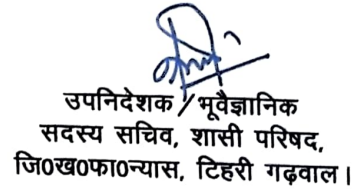 उपनिदेशक / भूवैज्ञानिक
सदस्य सचिव, शासी परिषद,
जि0ख0फा0न्यास, टिहरी गढ़वाल।